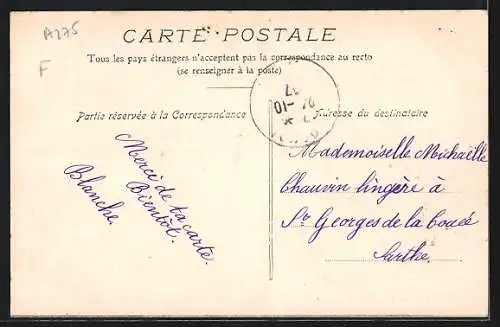 A275
F
CARTE POSTALE
Tous les pays étrangers n'acceptent pas la correspondance au recto
(se renseigner à la poste)
Partie réservée à la Correspondance
Adresse du destinataire
Merci de ta carte.
Bientôt.
Blanche.
Mademoiselle Michaëlle
Chauvin lingère à
St Georges de la Couée
Sarthe.